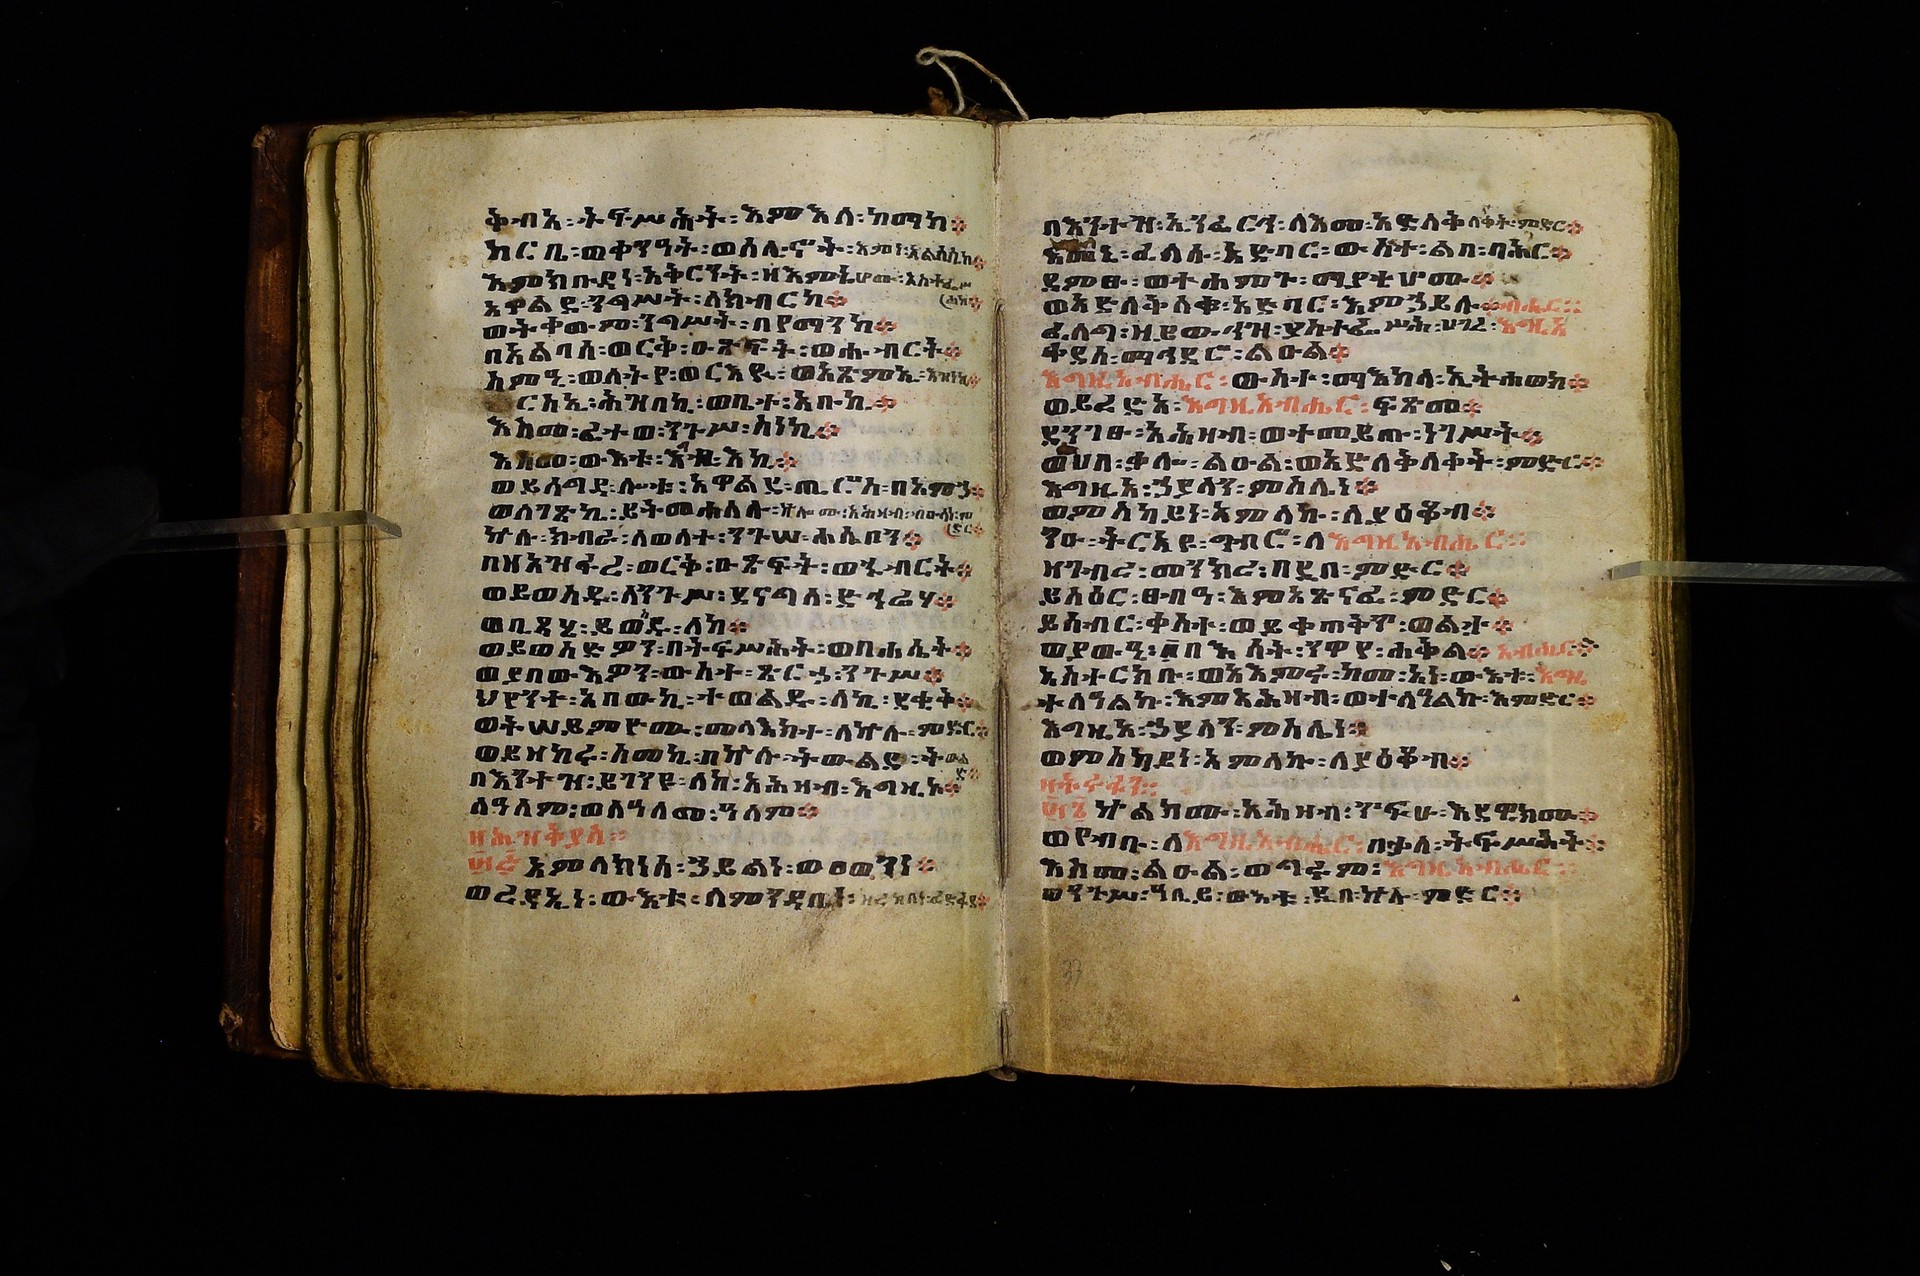 ቅብአ፡ ትፍሥሕት፡ እምእለ፡ ከማከ።
ከርቤ፡ ወቀንዓት፡ ወሰሊኆት፡ እምነ፡ አልባሲከ።
እምክቡዳነ፡ አቅርንት፡ ዘእምኔሆሙ፡ አስተፌሥ
(ሐከ።
አዋልደ፡ ንግሥት፡ ለክብርከ።
ወትቀውም፡ ንግሥት፡ በየማንከ።
በአልባሰ፡ ወርቅ፡ ዑጽፍት፡ ወሑብርት።
ስምዒ፡ ወለትየ፡ ወርእዪ፡ ወአጽምኢ፡ እዝነኪ።
ርስኢ፡ ሕዝበኪ፡ ወቤተ፡ አቡኪ።
እስመ፡ ፈተወ፡ ንጉሥ፡ ስነኪ።
እስመ፡ ውእቱ፡ እግዚእኪ።
ወይሰግዳ፡ ሎቱ፡ አዋልደ፡ ጢሮስ፡ በአምኃ።
ወለገጽኪ፡ ይትመሐለሉ፡ ኵሎሙ፡ አሕዛብ፡ ብዑላነ፡ ም
(ድር።
ኵሉ፡ ክብራ፡ ለወለተ፡ ንጉሠ፡ ሐሴቦን።
በዘአዝፋረ፡ ወርቅ፡ ዑጽፍት፡ ወኁብርት።
ወይወስዱ፡ ለንጉሥ፡ ደናግለ፡ ድኅሬሃ።
ወቢጻሂ፡ ይወስዱ፡ ለከ።
ወይወስድዎን፡ በትፍሥሕት፡ ወበሐሤት።
ወያበውእዎን፡ ውስተ፡ ጽርሐ፡ ንጉሥ።
ህየንተ፡ አበውኪ፡ ተወልዱ፡ ለኪ፡ ደቂቅ።
ወትሠይምዮሙ፡ መላእክተ፡ ለኵሉ፡ ምድር።
ወይዘከሩ፡ ስመኪ፡ በኵሉ፡ ትውልደ፡ ትውል
ድ።
በእንተዝ፡ ይገንዩ፡ ለከ፡ አሕዛብ፡ እግዚኦ።
ለዓለም፡ ወለዓለመ፡ ዓለም።
ዘሕዝቅያስ።
፵፭ አምላክነሰ፡ ኃይልነ፡ ወፀወንነ።
ወረዳኢነ፡ ውእቱ፡ በምንዳቤነ፡ ዘረከበነ፡ ፈድፋደ።
በእንተዝ፡ ኢንፈርህ፡ ለእመ፡ አድለቅለቀት፡ ምድር።
እመኒ፡ ፈለሱ፡ አድባር፡ ውስተ፡ ልበ፡ ባሕር።
ደምፁ፡ ወተሐምጉ፡ ማያቲሆሙ።
ወአድለቅለቁ፡ አድባር፡ እምኃይሉ።
ፈለግ፡ ዘይውኅዝ፡ ያስተፌሥሕ፡ ሀገረ፡ እግዚአብሔር።
ቀደሰ፡ ማኅደሮ፡ ልዑል።
እግዚአብሔር፡ ውስተ፡ ማእከላ፡ ኢትሐወክ።
ወይረድኣ፡ እግዚአብሔር፡ ፍጽመ።
ደንገፁ፡ አሕዛብ፡ ወተመይጡ፡ ነገሥት።
ወሀበ፡ ቃሎ፡ ልዑል፡ ወአድለቅለቀት፡ ምድር።
እግዚአ፡ ኃያላን፡ ምስሌነ።
ወምስካይነ፡ አምላኩ፡ ለያዕቆብ።
ንዑ፡ ትርአዩ፡ ግብሮ፡ ለእግዚአብሔር።
ዘገብረ፡ መንክረ፡ በዲበ፡ ምድር።
ይስዕር፡ ፀብዓ፡ እምአጽናፈ፡ ምድር።
ይሰብር፡ ቀስተ፡ ወይቀጠቅጥ፡ ወልታ።
ወያውዒ፡ በእሳት፡ ንዋየ፡ ሐቅል።
አስተርክቡ፡ ወአእምሩ፡ ከመ፡ አነ፡ ውእቱ፡ እግዚአብሔር።
ተለዓልኩ፡ እምአሕዛብ፡ ወተለዓልኩ፡ እምድር።
እግዚአ፡ ኃያላን፡ ምስሌነ።
ወምስካይነ፡ አምላኩ፡ ለያዕቆብ።
ዘትረፋን።
፵፮ ኵልክሙ፡ አሕዛብ፡ ጥፍሁ፡ እደዊክሙ።
ወየብቡ፡ ለእግዚአብሔር፡ በቃለ፡ ትፍሥሕት።
እስመ፡ ልዑል፡ ወግሩም፡ እግዚአብሔር።
ወንጉሥ፡ ዓቢይ፡ ውእቱ፡ ዲበ፡ ኵሉ፡ ምድር።
33